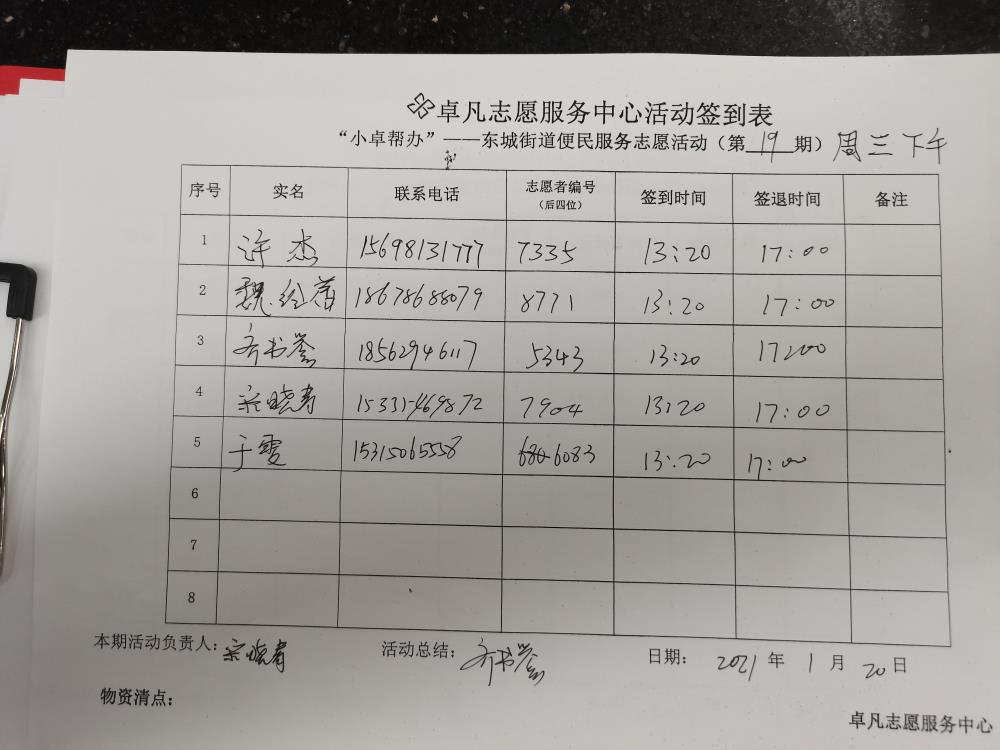 卓凡志愿服务中心活动签到表
“小卓帮办”——东城街道便民服务志愿活动（第19期）周三下午
序号 实名 联系电话 志愿者编号（后四位） 签到时间 签退时间 备注
1 许杰 15698131777 7335 13:20 17:00
2 魏 18678688079 8771 13:20 17:00
3 齐书誉 18562946117 5343 13:20 17:00
4 宗晓青 15331469872 7904 13:20 17:00
5 于雯 15315065558 6083 13:20 17:00
6
7
8
本期活动负责人：宗晓青 活动总结：齐书誉 日期：2021年1月20日
物资清点：
卓凡志愿服务中心